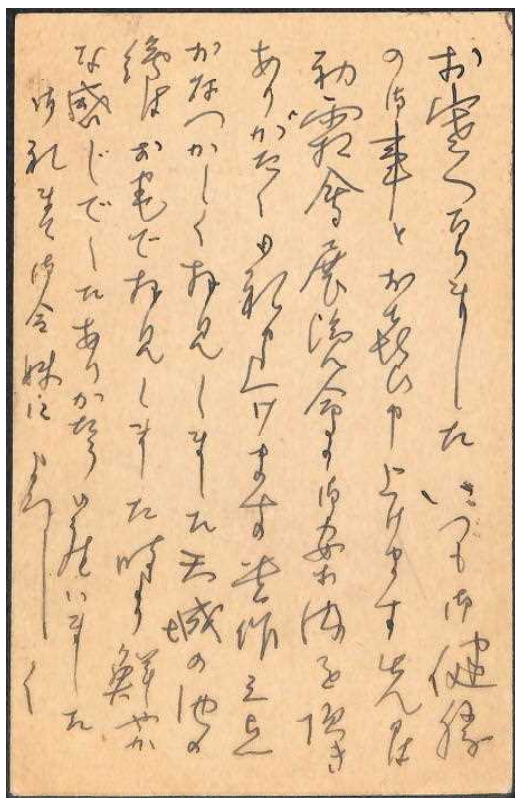 お寒くなりました いつも御健勝
の御事とお喜び申し上げます 先日は
初霜會展覧会の御案内を頂き
ありがたく御礼申し上げます 貴作三点
がなつかしく拝見しました 天城の池の
繪はお宅で拝見しました時より鮮やか
な感じでした ありがたうございました
御礼まで 御令妹に よろしく